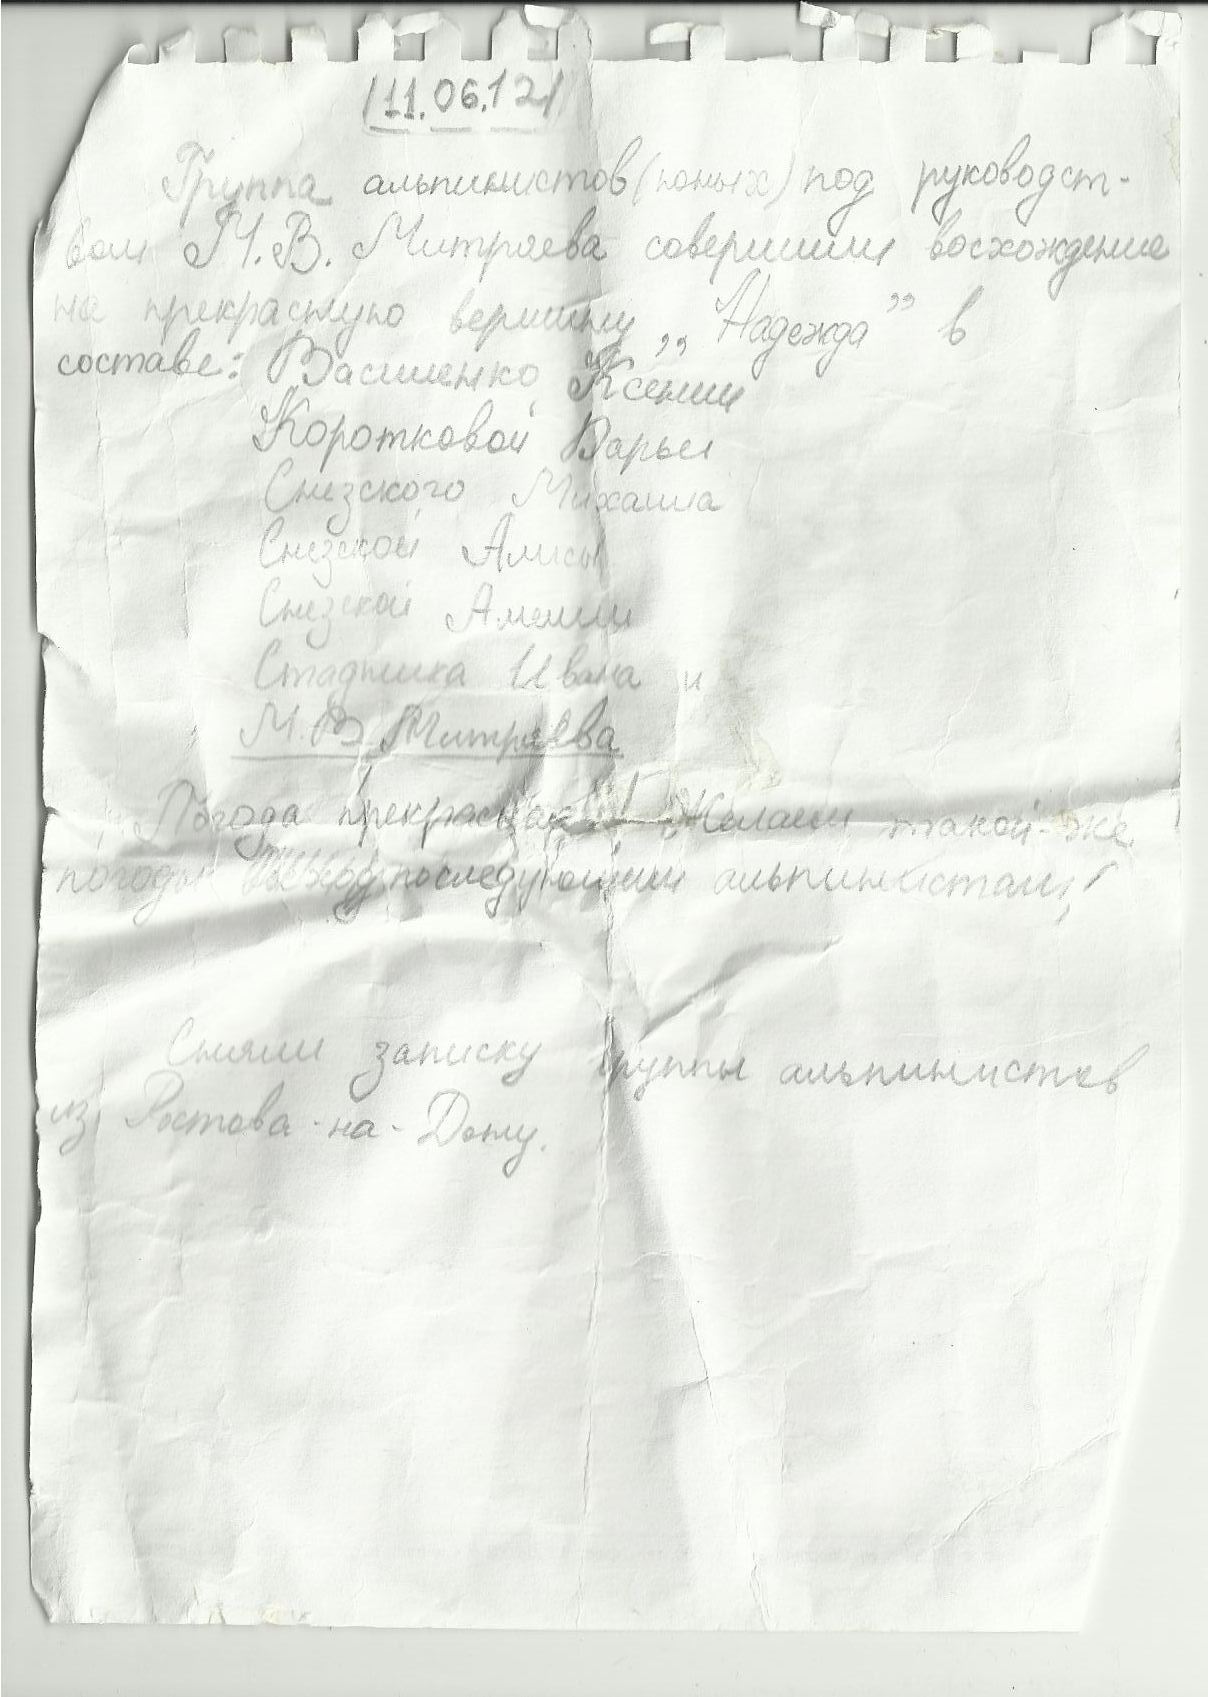 11.06.12
Группа альпинистов (юных) под руководст-
вом М.В. Митряева совершили восхождение
на прекрасную вершину „Надежда” в
составе: Василенко Ксении
Коротковой Дарьи
Снезского Михаила
Снезской Алисы
Снезской Амелии
Стадника Ивана и
М.В. Митряева
Погода прекрасная! Желаем такой-же
погоды последующим альпинистам!
Сняли записку группы альпинистов
из Ростова-на-Дону.